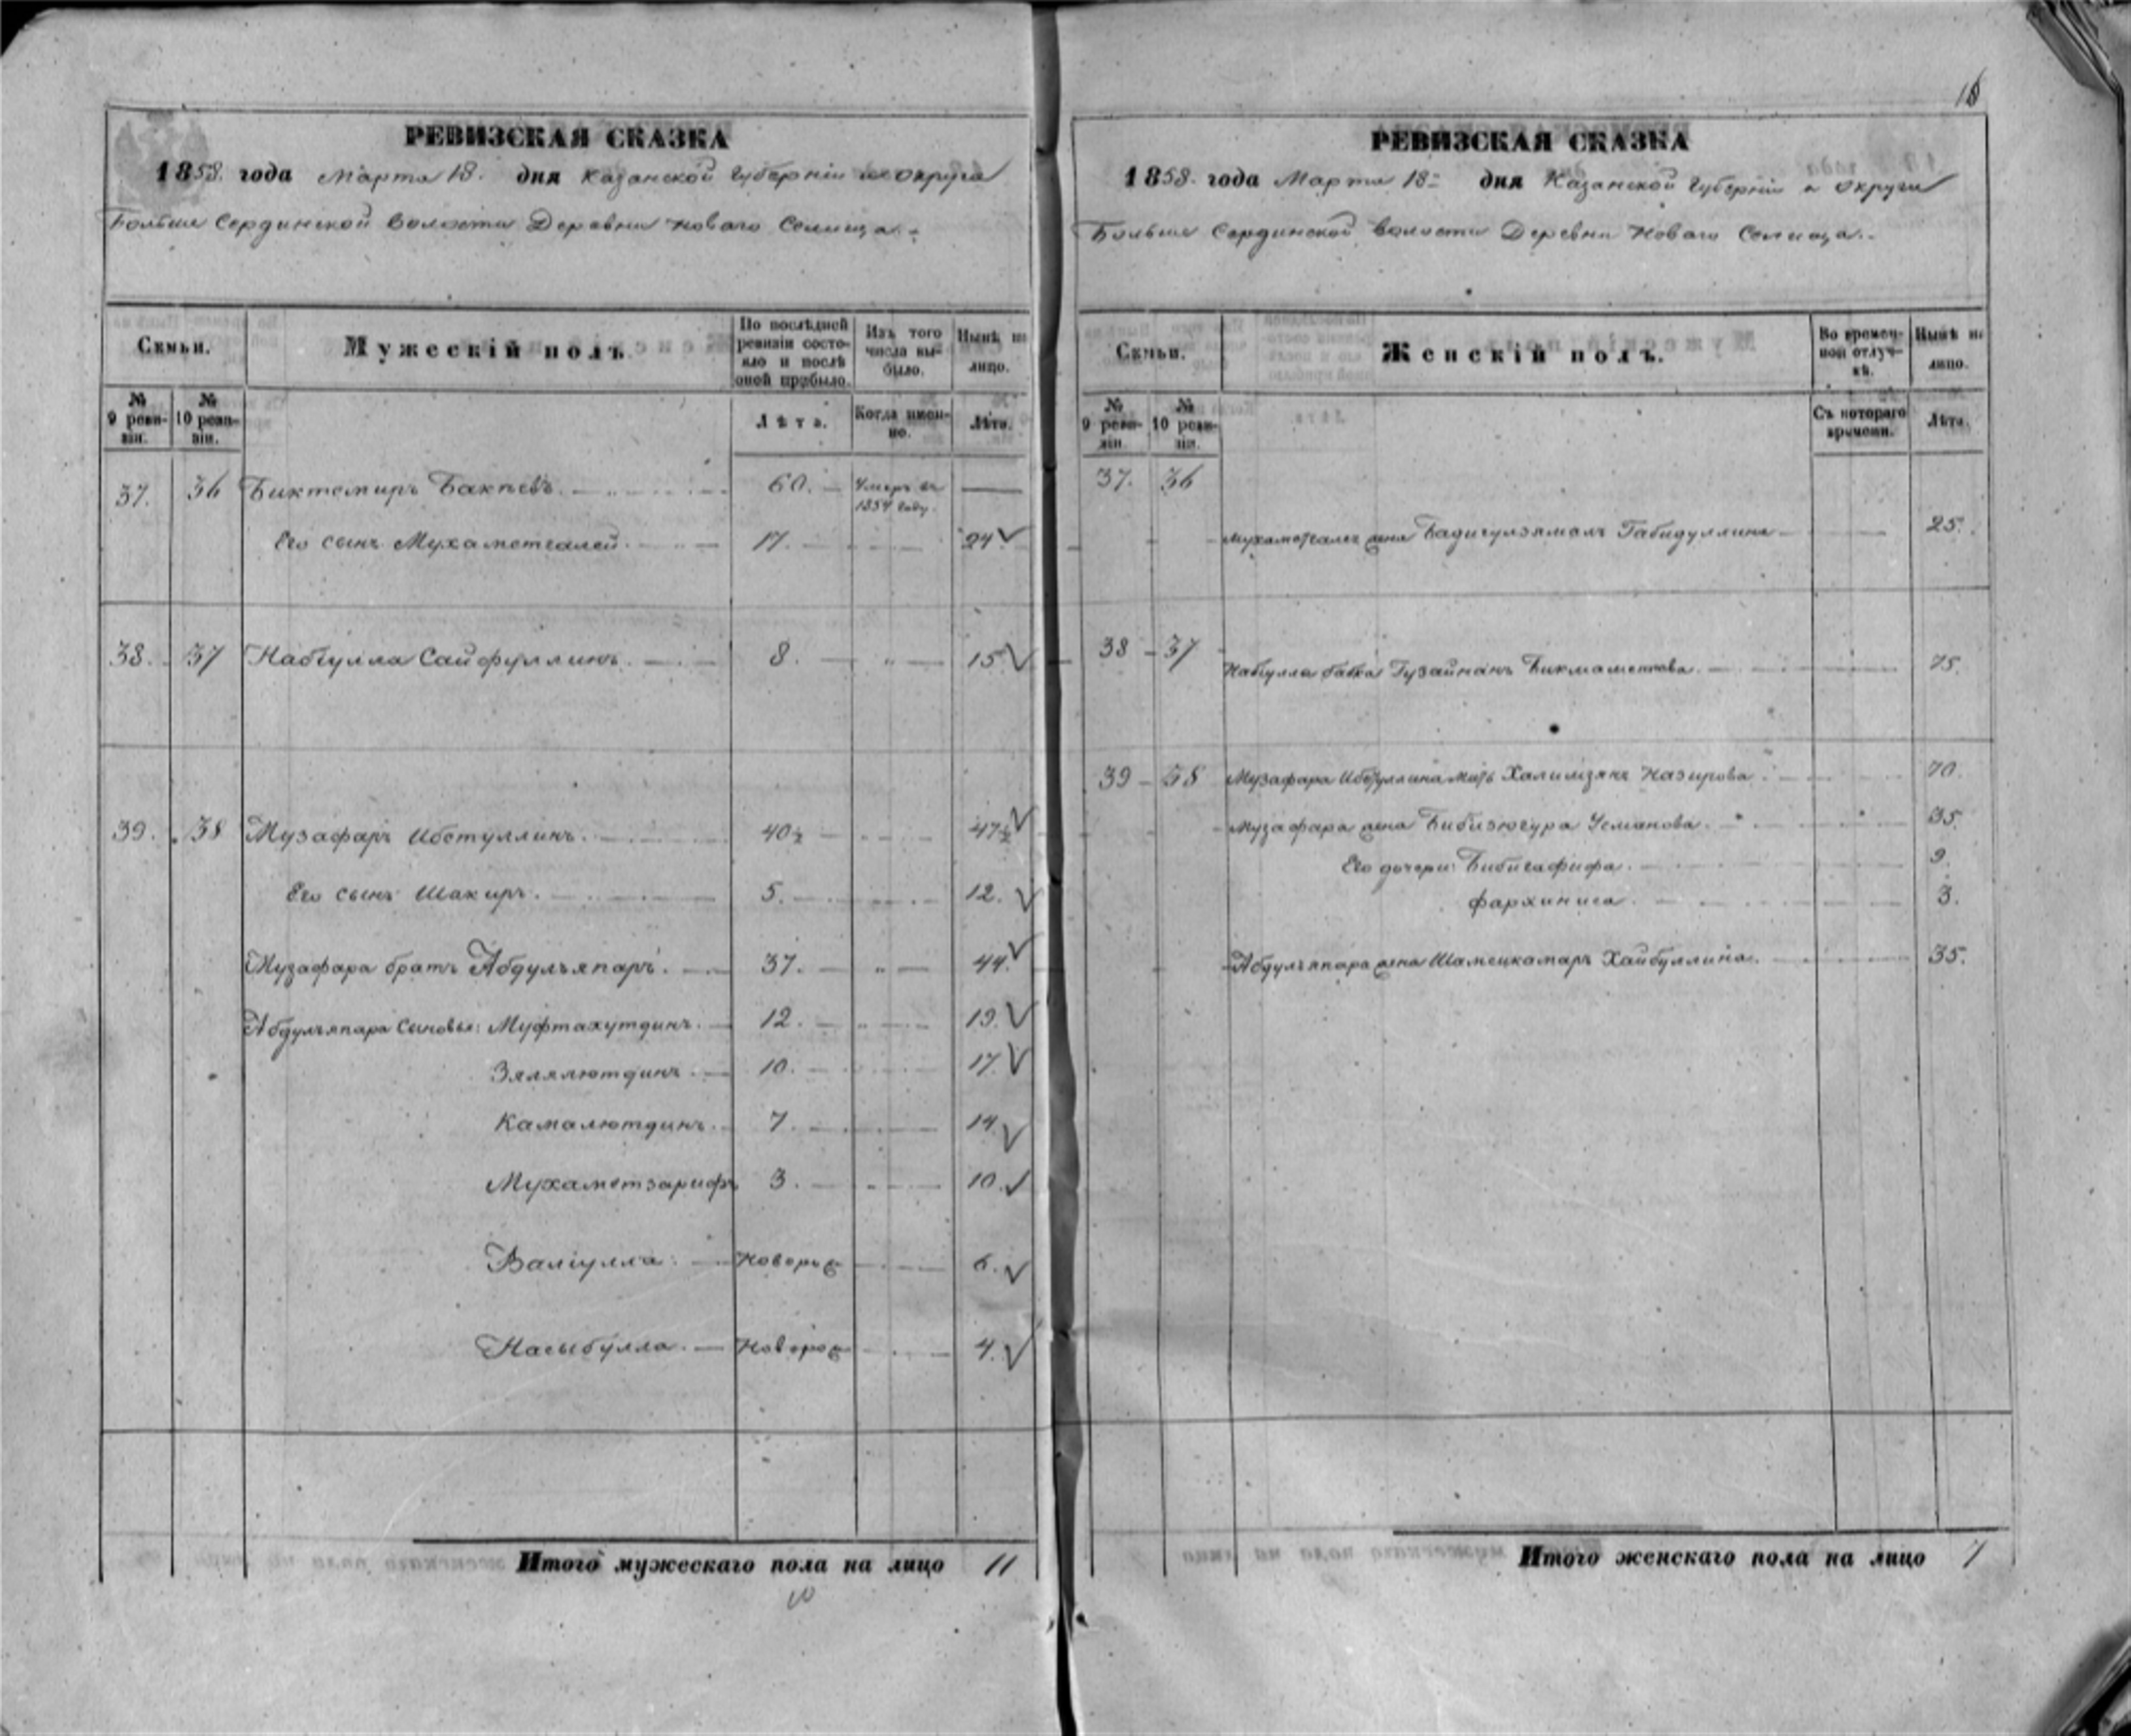 РЕВИЗСКАЯ СКАЗКА
1858. года Марта 18. дня Казанской Губерніи и округа
Больше Сердинской Волости Деревни Новаго Селища.
Семьи.
Мужескій полъ.
По послѣдней ревизіи состояло и послѣ оной прибыло.
Изъ того числа выбыло.
Нынѣ на лицо.
№ 9 ревизіи.
№ 10 ревизіи.
Лѣта.
Когда именно.
Лѣта.
37. 36 Биктемиръ Бакѣевъ. 60. Умеръ въ 1854 году.
Его сынъ Мухаметгалей. 17. 24
38. 37 Набіулла Сайфуллинъ. 8. 15.
39. 38 Музафаръ Ибетуллинъ. 40½ 47½
Его сынъ Шакиръ. 5. 12.
Музафара братъ Абдулъяпаръ. 37. 44.
Абдулъяпара сыновья: Муфтахутдинъ. 12. 19.
Зялялютдинъ. 10. 17.
Камалютдинъ. 7. 14.
Мухаметзарифъ 3. 10.
Валіулла. Новорож 6.
Насыбулла. Новорож 4.
Итого мужескаго пола на лицо 11
16
РЕВИЗСКАЯ СКАЗКА
1858. года Марта 18 дня Казанской Губерніи и округи
Больше Сердинской Волости Деревни Новаго Селища.
Семьи.
Женскій полъ.
Во временной отлучкѣ.
Нынѣ на лицо.
№ 9 ревизіи.
№ 10 ревизіи.
Съ котораго времени.
Лѣта.
37. 36
Мухаметгалея жена Бадигулзямалъ Габидуллина 25.
38 37
Набіулла бабка Гузайнанъ Бикмаметова. 75.
39 38 Музафара Ибетуллина мать Халимзянъ Назирова. 70.
Музафара жена Бибизюгура Усманова. 35.
Его дочери: Бибигафифа. 9.
Фархиниса. 3.
Абдулъяпара жена Шамсикамаръ Хайбуллина. 35.
Итого женскаго пола на лицо 7